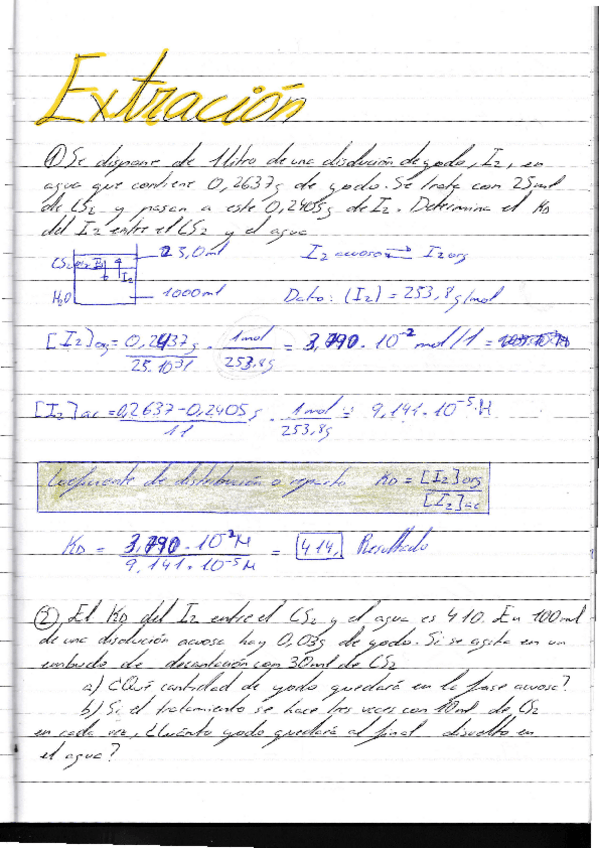 Extración
① Se dispone de 1 litro de una disolución de yodo, I2, en
agua que contiene 0,2637g de yodo. Se trata con 25 ml
de CS2 y pasan a este 0,2405g de I2. Determina el KD
del I2 entre el CS2 y el agua
CS2 25,0 ml I2 acuoso ⇌ I2 org
I2
H2O 1000 ml Dato: (I2) = 253,8 g/mol
[I2]org = 0,2437g / 25·10⁻³l · 1mol / 253,8g = 3,790·10⁻² mol/l =
[I2]ac = 0,2637-0,2405g / 1l · 1mol / 253,8g = 9,141·10⁻⁵ M
Coeficiente de distribución o reparto KD = [I2]org / [I2]ac
KD = 3,790·10⁻² M / 9,141·10⁻⁵ M = 414, Resultado
② El KD del I2 entre el CS2 y el agua es 410. En 100 ml
de una disolución acuosa hay 0,03g de yodo. Si se agita en un
embudo de decantación con 30 ml de CS2
a) ¿Qué cantidad de yodo quedará en la fase acuosa?
b) Si el tratamiento se hace tres veces con 10 ml de CS2
en cada vez, ¿Cuánto yodo quedará al final disuelto en
el agua?